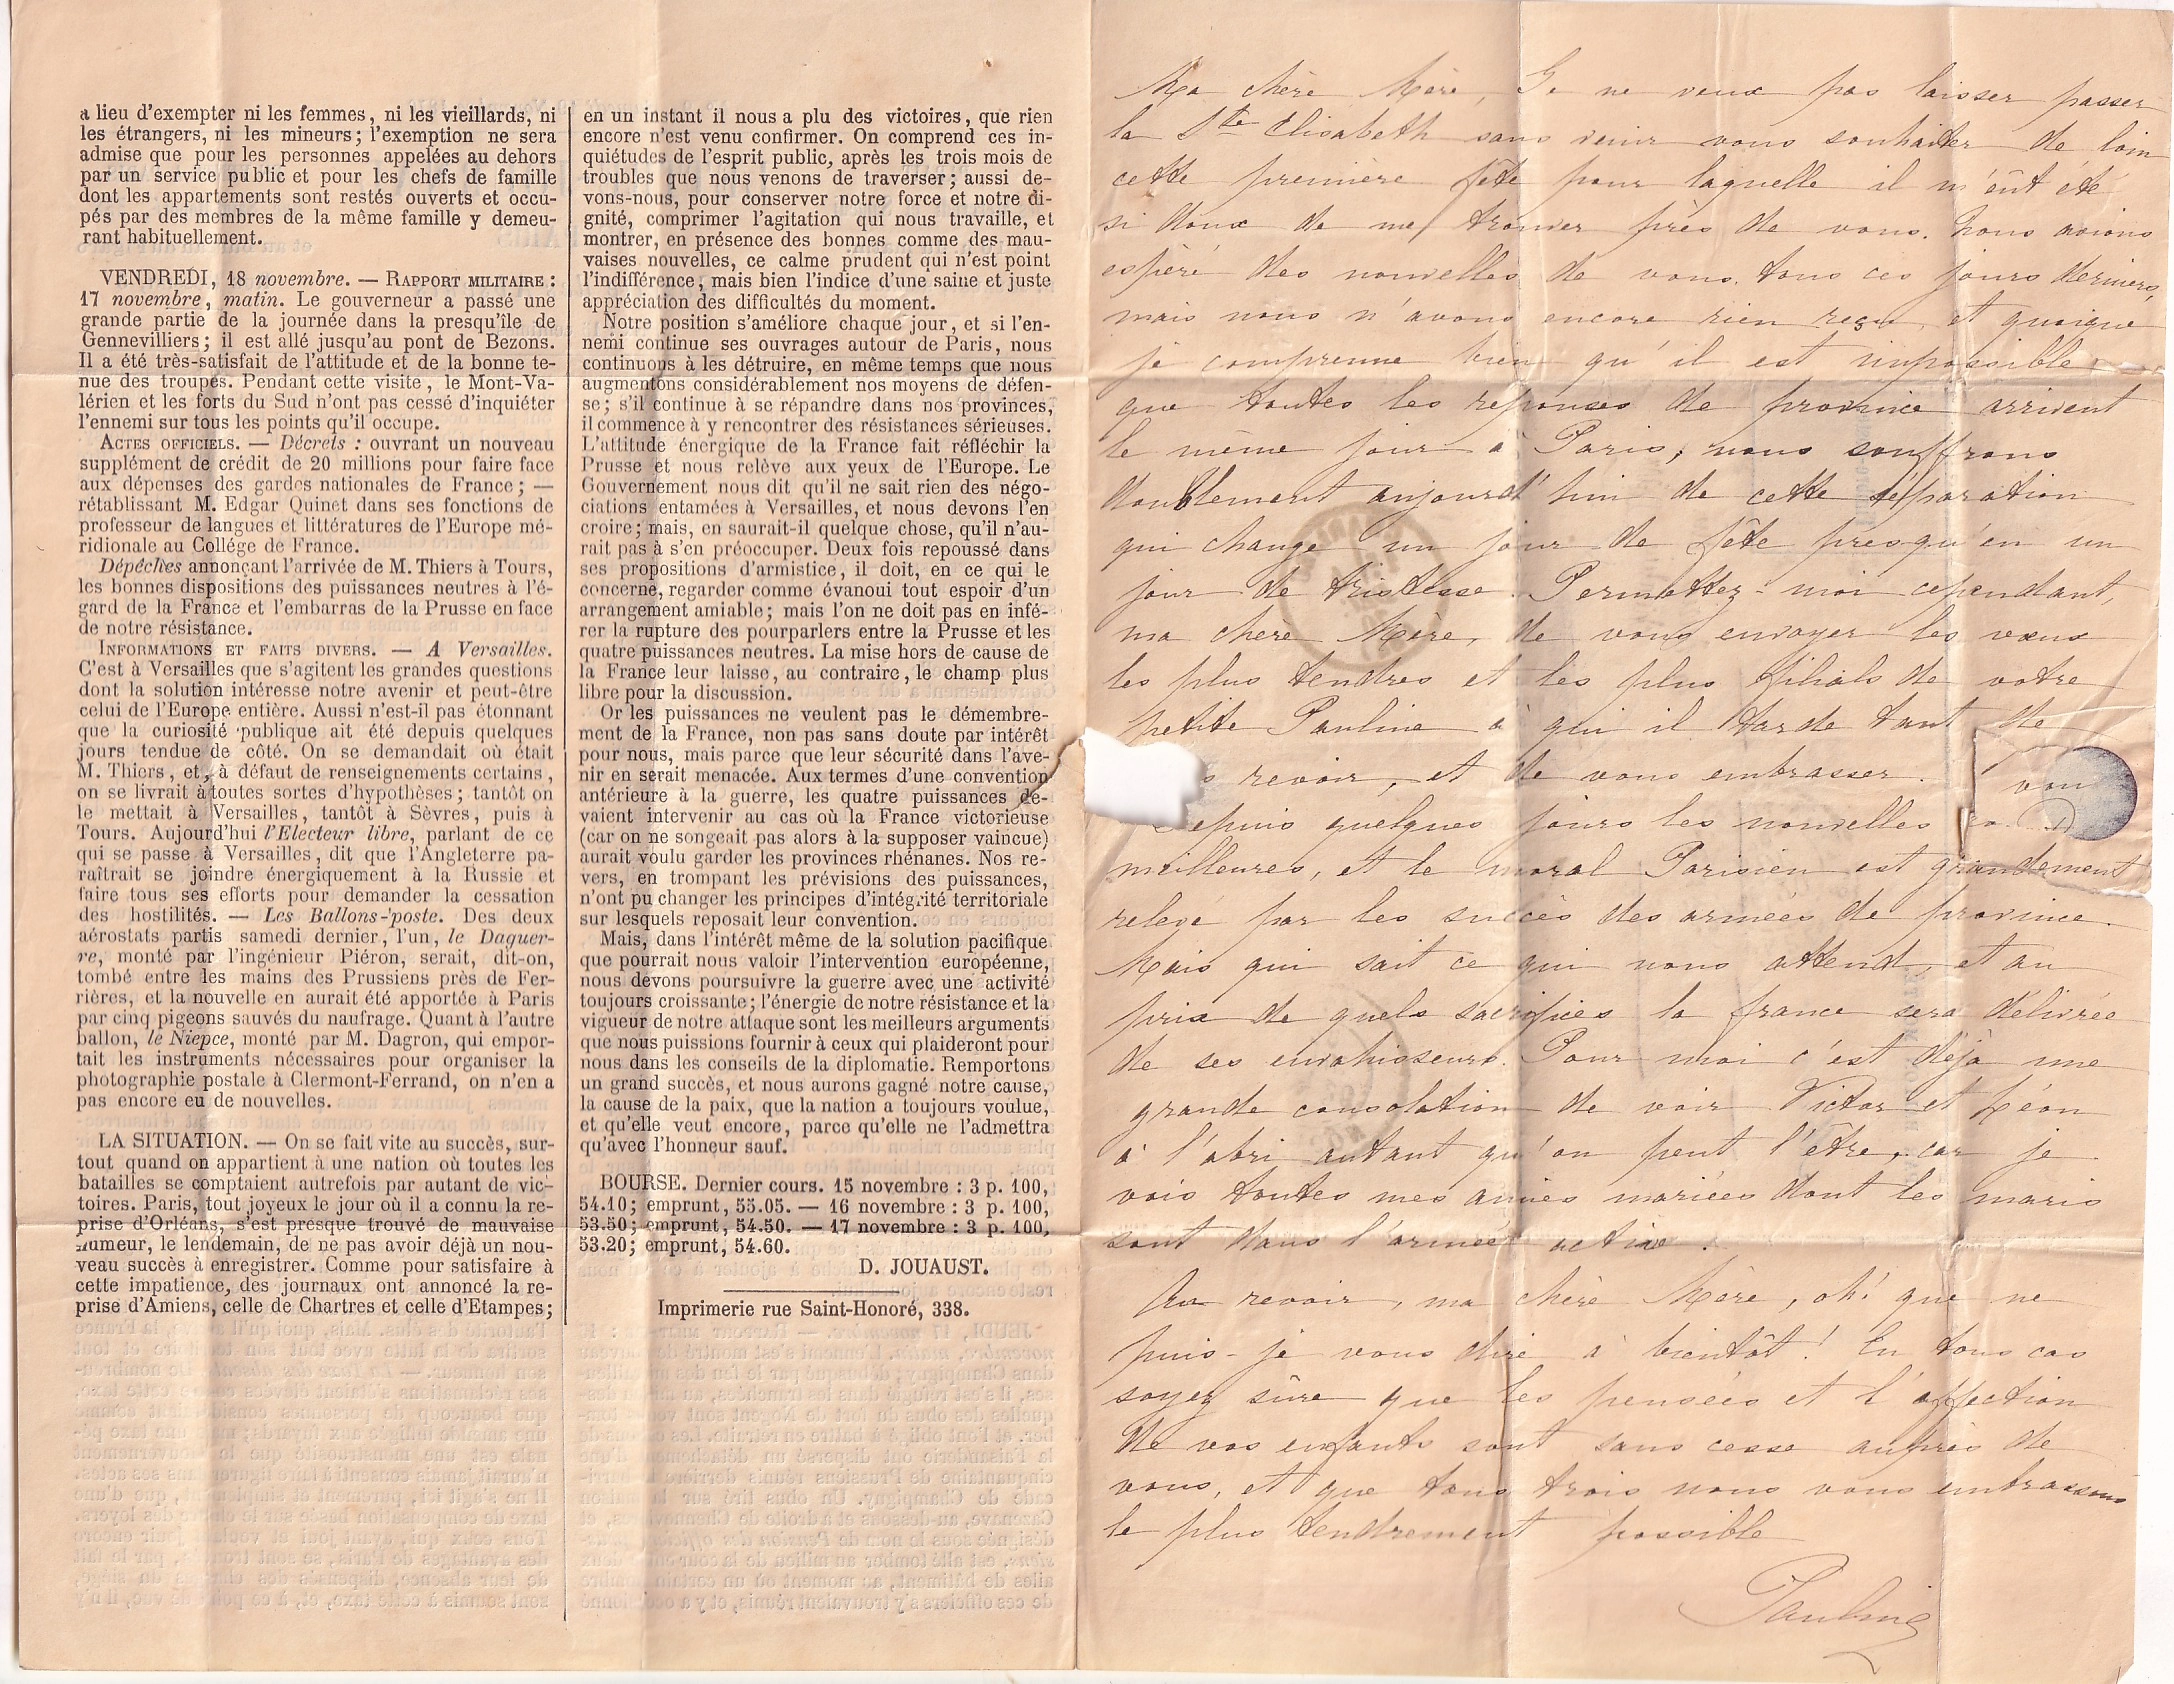 a lieu d'exempter ni les femmes, ni les vieillards, ni
les étrangers, ni les mineurs; l'exemption ne sera
admise que pour les personnes appelées au dehors
par un service public et pour les chefs de famille
dont les appartements sont restés ouverts et occu-
pés par des membres de la même famille y demeu-
rant habituellement.
VENDREDI, 18 novembre. — RAPPORT MILITAIRE :
17 novembre, matin. Le gouverneur a passé une
grande partie de la journée dans la presqu'île de
Gennevilliers; il est allé jusqu'au pont de Bezons.
Il a été très-satisfait de l'attitude et de la bonne te-
nue des troupes. Pendant cette visite, le Mont-Va-
lérien et les forts du Sud n'ont pas cessé d'inquiéter
l'ennemi sur tous les points qu'il occupe.
ACTES OFFICIELS. — Décrets : ouvrant un nouveau
supplément de crédit de 20 millions pour faire face
aux dépenses des gardes nationales de France; —
rétablissant M. Edgar Quinet dans ses fonctions de
professeur de langues et littératures de l'Europe mé-
ridionale au Collége de France.
Dépêches annonçant l'arrivée de M. Thiers à Tours,
les bonnes dispositions des puissances neutres à l'é-
gard de la France et l'embarras de la Prusse en face
de notre résistance.
INFORMATIONS ET FAITS DIVERS. — A Versailles.
C'est à Versailles que s'agitent les grandes questions
dont la solution intéresse notre avenir et peut-être
celui de l'Europe entière. Aussi n'est-il pas étonnant
que la curiosité publique ait été depuis quelques
jours tendue de côté. On se demandait où était
M. Thiers, et, à défaut de renseignements certains,
on se livrait à toutes sortes d'hypothèses; tantôt on
le mettait à Versailles, tantôt à Sèvres, puis à
Tours. Aujourd'hui l'Electeur libre, parlant de ce
qui se passe à Versailles, dit que l'Angleterre pa-
raîtrait se joindre énergiquement à la Russie et
faire tous ses efforts pour demander la cessation
des hostilités. — Les Ballons-poste. Des deux
aérostats partis samedi dernier, l'un, le Daguer-
re, monté par l'ingénieur Piéron, serait, dit-on,
tombé entre les mains des Prussiens près de Fer-
rières, et la nouvelle en aurait été apportée à Paris
par cinq pigeons sauvés du naufrage. Quant à l'autre
ballon, le Niepce, monté par M. Dagron, qui empor-
tait les instruments nécessaires pour organiser la
photographie postale à Clermont-Ferrand, on n'en a
pas encore eu de nouvelles.
LA SITUATION. — On se fait vite au succès, sur-
tout quand on appartient à une nation où toutes les
batailles se comptaient autrefois par autant de vic-
toires. Paris, tout joyeux le jour où il a connu la re-
prise d'Orléans, s'est presque trouvé de mauvaise
humeur, le lendemain, de ne pas avoir déjà un nou-
veau succès à enregistrer. Comme pour satisfaire à
cette impatience, des journaux ont annoncé la re-
prise d'Amiens, celle de Chartres et celle d'Etampes;
en un instant il nous a plu des victoires, que rien
encore n'est venu confirmer. On comprend ces in-
quiétudes de l'esprit public, après les trois mois de
troubles que nous venons de traverser; aussi de-
vons-nous, pour conserver notre force et notre di-
gnité, comprimer l'agitation qui nous travaille, et
montrer, en présence des bonnes comme des mau-
vaises nouvelles, ce calme prudent qui n'est point
l'indifférence, mais bien l'indice d'une saine et juste
appréciation des difficultés du moment.
Notre position s'améliore chaque jour, et si l'en-
nemi continue ses ouvrages autour de Paris, nous
continuons à les détruire, en même temps que nous
augmentons considérablement nos moyens de défen-
se; s'il continue à se répandre dans nos provinces,
il commence à y rencontrer des résistances sérieuses.
L'attitude énergique de la France fait réfléchir la
Prusse et nous relève aux yeux de l'Europe. Le
Gouvernement nous dit qu'il ne sait rien des négo-
ciations entamées à Versailles, et nous devons l'en
croire; mais, en saurait-il quelque chose, qu'il n'au-
rait pas à s'en préoccuper. Deux fois repoussé dans
ses propositions d'armistice, il doit, en ce qui le
concerne, regarder comme évanoui tout espoir d'un
arrangement amiable; mais l'on ne doit pas en infé-
rer la rupture des pourparlers entre la Prusse et les
quatre puissances neutres. La mise hors de cause de
la France leur laisse, au contraire, le champ plus
libre pour la discussion.
Or les puissances ne veulent pas le démembre-
ment de la France, non pas sans doute par intérêt
pour nous, mais parce que leur sécurité dans l'ave-
nir en serait menacée. Aux termes d'une convention
antérieure à la guerre, les quatre puissances de-
vaient intervenir au cas où la France victorieuse
(car on ne songeait pas alors à la supposer vaincue)
aurait voulu garder les provinces rhénanes. Nos re-
vers, en trompant les prévisions des puissances,
n'ont pu changer les principes d'intégrité territoriale
sur lesquels reposait leur convention.
Mais, dans l'intérêt même de la solution pacifique
que pourrait nous valoir l'intervention européenne,
nous devons poursuivre la guerre avec une activité
toujours croissante; l'énergie de notre résistance et la
vigueur de notre attaque sont les meilleurs arguments
que nous puissions fournir à ceux qui plaideront pour
nous dans les conseils de la diplomatie. Remportons
un grand succès, et nous aurons gagné notre cause,
la cause de la paix, que la nation a toujours voulue,
et qu'elle veut encore, parce qu'elle ne l'admettra
qu'avec l'honneur sauf.
BOURSE. Dernier cours. 15 novembre : 3 p. 100,
54.10; emprunt, 55.05. — 16 novembre : 3 p. 100,
53.50; emprunt, 54.50. — 17 novembre : 3 p. 100,
53.20; emprunt, 54.60.
D. JOUAUST.
Imprimerie rue Saint-Honoré, 338.
Ma chère Mère, Je ne veux pas laisser passer
la Ste Elisabeth sans venir vous souhaiter de loin
cette première fête pour laquelle il m'eût été
si doux de me trouver près de vous. Nous avions
espéré des nouvelles de vous tous ces jours derniers,
mais nous n'avons encore rien reçu, et quoique
je comprenne bien qu'il est impossible
que toutes les réponses de province arrivent
le même jour à Paris, nous souffrons
doublement aujourd'hui de cette séparation
qui change un jour de fête presqu'en un
jour de tristesse. Permettez-moi cependant,
ma chère Mère, de vous envoyer les vœux
les plus tendres et les plus filials de votre
petite Pauline à qui il tarde tant de
vous revoir, et de vous embrasser.
Depuis quelques jours les nouvelles
meilleures, et le moral Parisien est grandement
relevé par les succès des armées de province.
Mais qui sait ce qui nous attend, et au
prix de quels sacrifices la france sera délivrée
de ses envahisseurs. Pour moi c'est déjà une
grande consolation de voir Victor et Léon
à l'abri autant qu'on peut l'être, car je
vois toutes mes amies mariées dont les maris
sont dans l'armée active.
Au revoir, ma chère Mère, oh! que ne
puis-je vous dire à bientôt! En tous cas
soyez sûre que les pensées et l'affection
de vos enfants sont sans cesse auprès de
vous, et que tous trois nous vous embrassons
le plus tendrement possible
Pauline